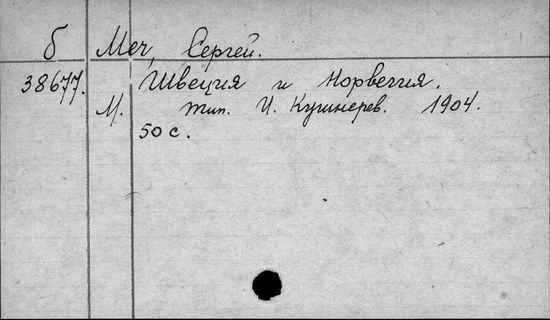 б Меч, Сергей.
38677. Швеция и Норвегия.
М. тип. И. Кушнерев. 1904.
50 с.